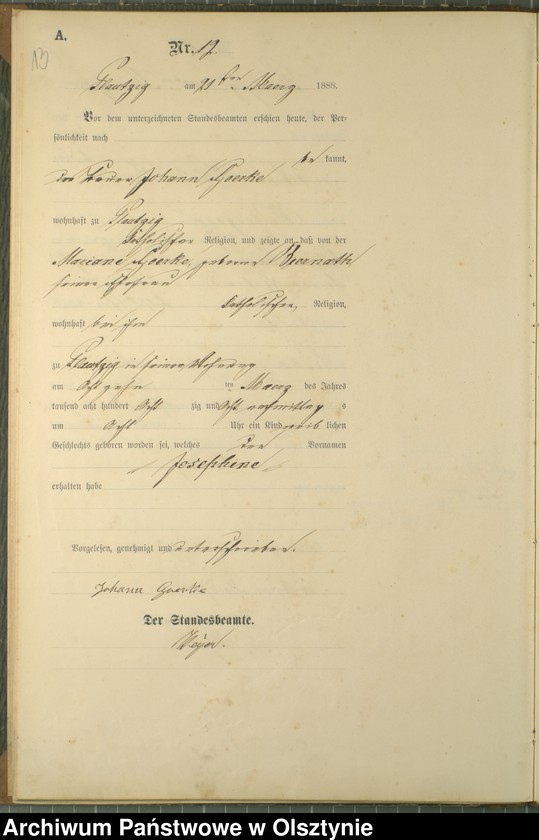 A.
13
Nr. 12.
Plautzig am 21ten Maerz 1888.
Vor dem unterzeichneten Standesbeamten erschien heute, der Per-
sönlichkeit nach
be kannt,
der Johann Goerke
wohnhaft zu Plautzig
katholischer Religion, und zeigte an, daß von der
Mariane Goerke, geborne Biernath
seiner Ehefrau
katholischer Religion,
wohnhaft bei ihm
zu Plautzig in seiner Wohnung
am Achtzehn ten Maerz des Jahres
tausend acht hundert Acht zig und Acht vormittag s
um Acht Uhr ein Kind weib lichen
Geschlechts geboren worden sei, welches den Vornamen
Josephine
erhalten habe
Vorgelesen, genehmigt und unterschrieben.
Johann Goerke
Der Standesbeamte.
Archiwum Państwowe w Olsztynie